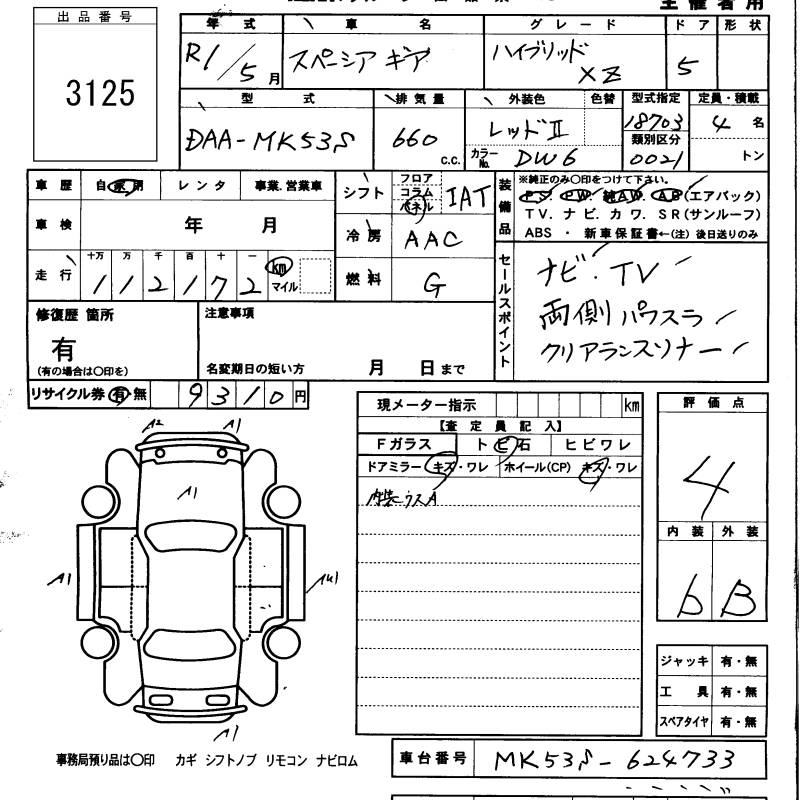 主催者用
出品番号
3125
年式 車名 グレード ドア 形状
R1/5月 スペーシア ギア ハイブリッド XZ 5
型式 排気量 外装色 色替 型式指定 定員・積載
DAA-MK53S 660 C.C. レッドⅡ 18703 4名
類別区分
カラーNo. DW6 0021 トン
車歴 自家用 レンタ 事業.営業車
シフト フロア コラム パネル IAT
装備品 ※純正のみ○印をつけて下さい。
PS. PW. 純AW. AB(エアバック)
TV. ナビ. カワ. SR(サンルーフ)
ABS ・ 新車保証書←(注) 後日送りのみ
車検 年 月
冷房 AAC
走行 十万 万 千 百 十 一
112172 km マイル
燃料 G
セールスポイント
ナビ・TV
両側パワスラ
クリアランスソナー
修復歴 箇所
有
(有の場合は○印を)
注意事項
名変期日の短い方 月 日まで
リサイクル券 有 無 9310円
現メーター指示 km
【査定員記入】
Fガラス トビ石 ヒビワレ
ドアミラー キズ・ワレ ホイール(CP) キズ・ワレ
内装ウスA
評価点
4
内装 外装
b B
A2 A1
A1
A1
A1
ジャッキ 有・無
工具 有・無
スペアタイヤ 有・無
事務局預り品は○印 カギ シフトノブ リモコン ナビロム
車台番号 MK53S-624733